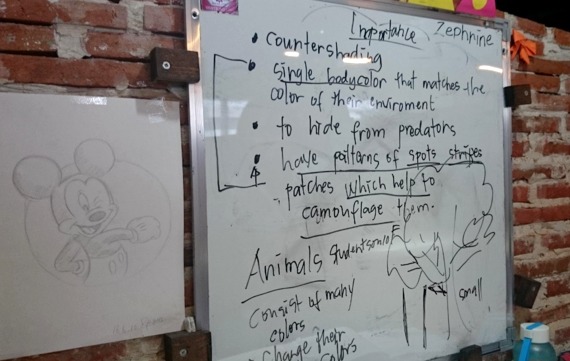 Importance Zephnine
• countershading
• single bodycolor that matches the
color of their enviroment
• to hide from predators
• have patterns of spots stripes
patches which help to
camouflage them.
Animals
consist of many
colors
change their
colors
small